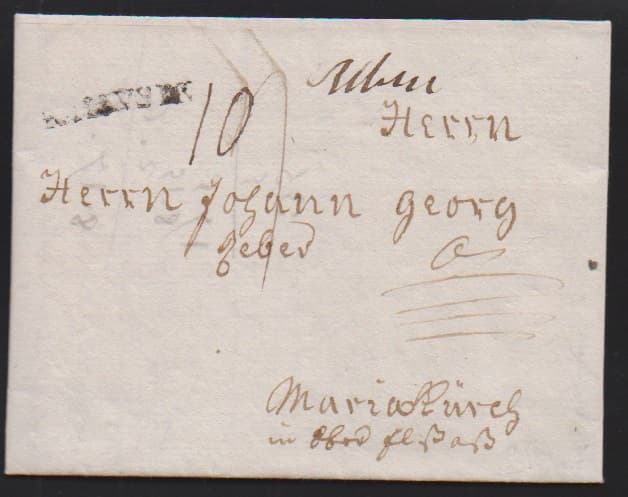 10
Herrn
Herrn Johann Georg
Geber
à
Mariakürch
in Ober Elsaß